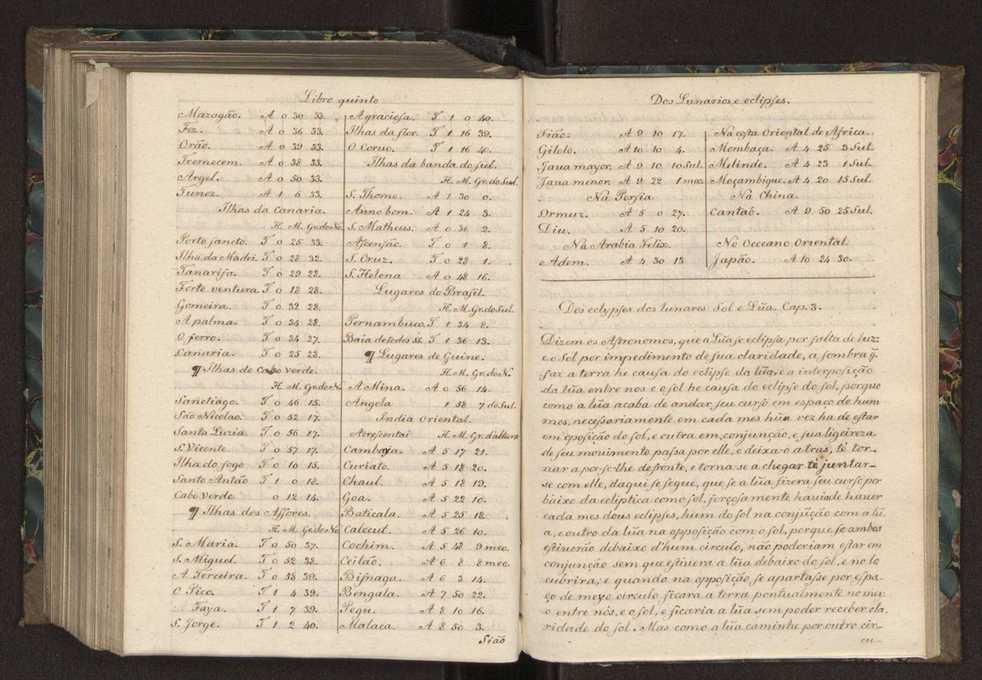 Libro quinto
Mazagão. A 0 30 33.
Fez. A 0 36 33.
Orão. A 0 39 33.
Tremecem. A 0 38 33.
Argel. A 0 50 33.
Tunez. A 1 6 33.
Ilhas da Canaria.
H. M. Gr. do Nó.
Porto sancto. T 0 25 33.
Ilha da Madei. T 0 28 32.
Tanarifa. T 0 29 28.
Forte ventura T 0 18 28.
Gomeira. T 0 32 28.
A palma. T 0 34 28.
O ferro. T 0 34 27.
Canaria. T 0 25 28.
¶ Ilhas de Cabo verde.
H. M. Gr. do Nó.
Sanctiago. T 0 46 15.
São Nicolao. T 0 52 17.
Santa Luzia. T 0 56 17.
S. Vicente. T 0 57 17.
Ilha do fogo T 0 10 15.
Santo Antão T 1 0 18.
Cabo Verde 0 12 14.
¶ Ilhas dos Assores.
H. M. Gr. do Nó
S. Maria. T 0 50 37.
S. Miguel. T 0 52 38.
A Terceira. T 0 58 39.
O Pico. T 1 4 39.
Faya. T 1 7 39.
S. Jorge. T 1 2 40.
A graciosa. T 1 0 40.
Ilhas da flor. T 1 16 39.
O Coruo. T 1 16 40.
Ilhas da banda do sul.
H. M. Gr. do Sul.
S. Thome. A 1 30 0.
Anno bom. A 1 24 3.
S. Matheus. A 0 36 2.
Ascensão. T 0 1 8.
S. Cruz. T 0 28 1.
S. Helena A 0 48 16.
Lugares do Brasil.
H. M. Gr. do Sul.
Pernambuco. T 1 34 8.
Baia de todos SS. T 1 36 13.
¶ Lugares de Guine.
H. M. Gr. do Nó.
A Mina. A 0 56 14.
Angola 1 58 7 do Sul.
India Oriental.
H. M. Gr. d'altura
Cambaya. A 5 17 21.
Curiate. A 5 18 20.
Chaul. A 5 18 19.
Goa. A 5 22 10.
Baticala. A 5 25 18.
Calecut. A 5 26 10.
Cochim. A 5 48 9 meo.
Ceilão. A 6 8 8 meo.
Bisnaga. A 6 3 14.
Bengala. A 7 50 22.
Pegu. A 8 10 16.
Malaca. A 8 50 3.
Sião
Dos Lunarios e eclipses.
Sião. A 9 10 17.
Gilolo. A 10 10 4.
Jaua mayor. A 9 10 10 Sul.
Jaua menor. A 9 22 1 meo.
Na Persia
Ormuz. A 5 0 27.
Diu. A 5 10 20.
Na Arabia Felix.
Adem. A 4 30 13
Na costa Oriental de Africa.
Mombaça. A 4 25 3 Sul.
Melinde. A 4 23 1 Sul.
Moçambique. A 4 20 15 Sul.
Na China.
Cantaõ. A 9 50 25 Sul.
No Occeano Oriental
Japão. A 10 24 30.
Dos eclypses dos lunares Sol e Lũa. Cap. 3.
Dizem os Astronomos, que a Lũa se eclipsa por falta de luz:
e o Sol por impedimento de sua claridade, a sombra q̃
faz a terra he causa do eclipse da lũa, e a interposição
da lũa entre nos e o sol he causa do eclipse do sol, porque
como a lũa acaba de andar seu curso em espaço de hum
mes, necessariamente em cada mes hũa vez ha de estar
em oposição do sol, e outra em conjunção, e sua ligeireza
de seu mouimento passa por elle, e deixa-o atras, té tor-
nar a por-se-lhe defronte, e torna-se a chegar té juntar-
se com elle, daqui se segue, que se a lũa fizera seu curso por
baixo da ecliptica como o sol, forçosamente hauia de hauer
cada mes dous eclipses, hum do sol na conjũção com a lũ
a, e outro da lũa na opposição com o sol, porque se ambos
estiuerão debaixo d'hum circulo, não poderiam estar em
conjunção sem que estiuera a lũa debaixo do sol, e no lo
cubrira, e quando na opposição se apartasse por espa-
ço de meyo circulo ficara a terra pontualmente no mei
o entre nós, e o sol, e ficaria a lũa sem poder receber cla-
ridade do sol. Mas como a lũa caminhe por outro cir-
cu_